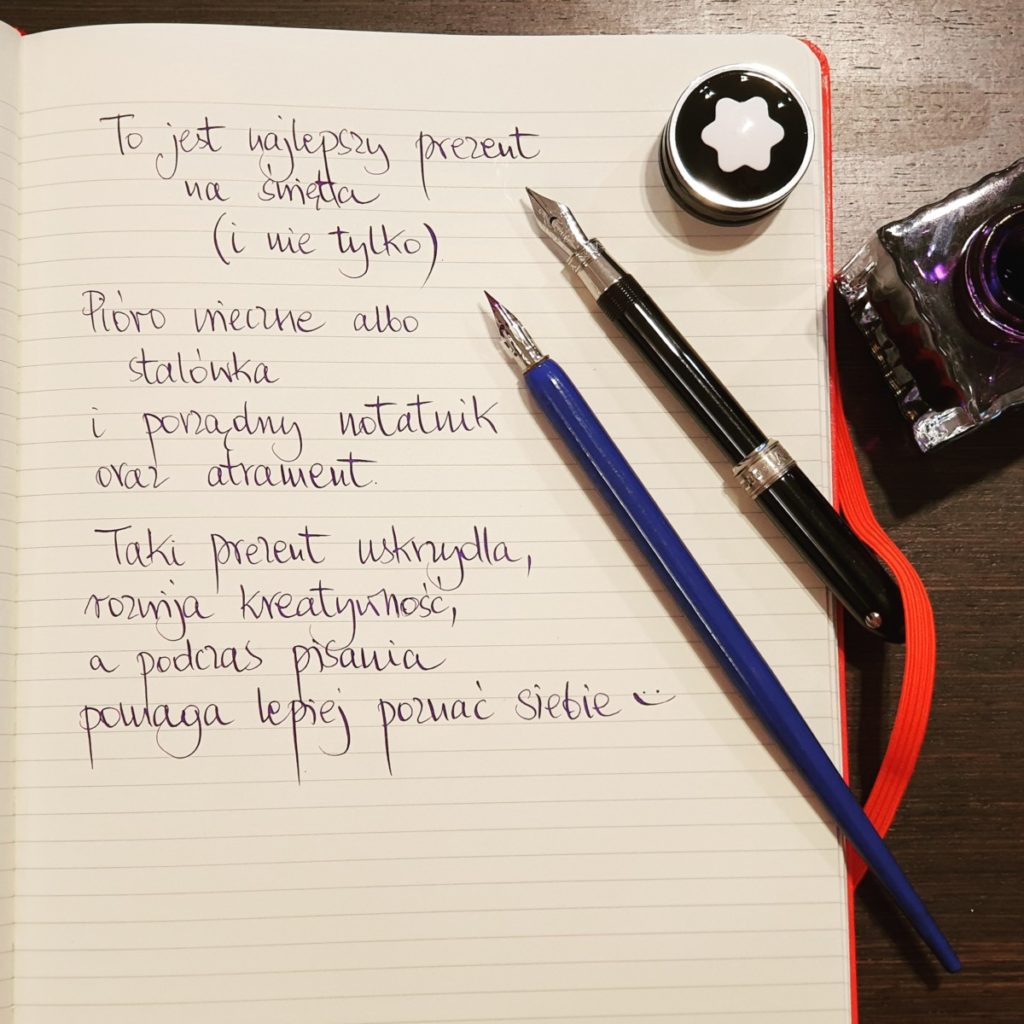 To jest najlepszy prezent
na święta
(i nie tylko)
Pióro wieczne albo
stalówka
i porządny notatnik
oraz atrament.
Taki prezent uskrzydla,
rozwija kreatywność,
a podczas pisania
pomaga lepiej poznać siebie